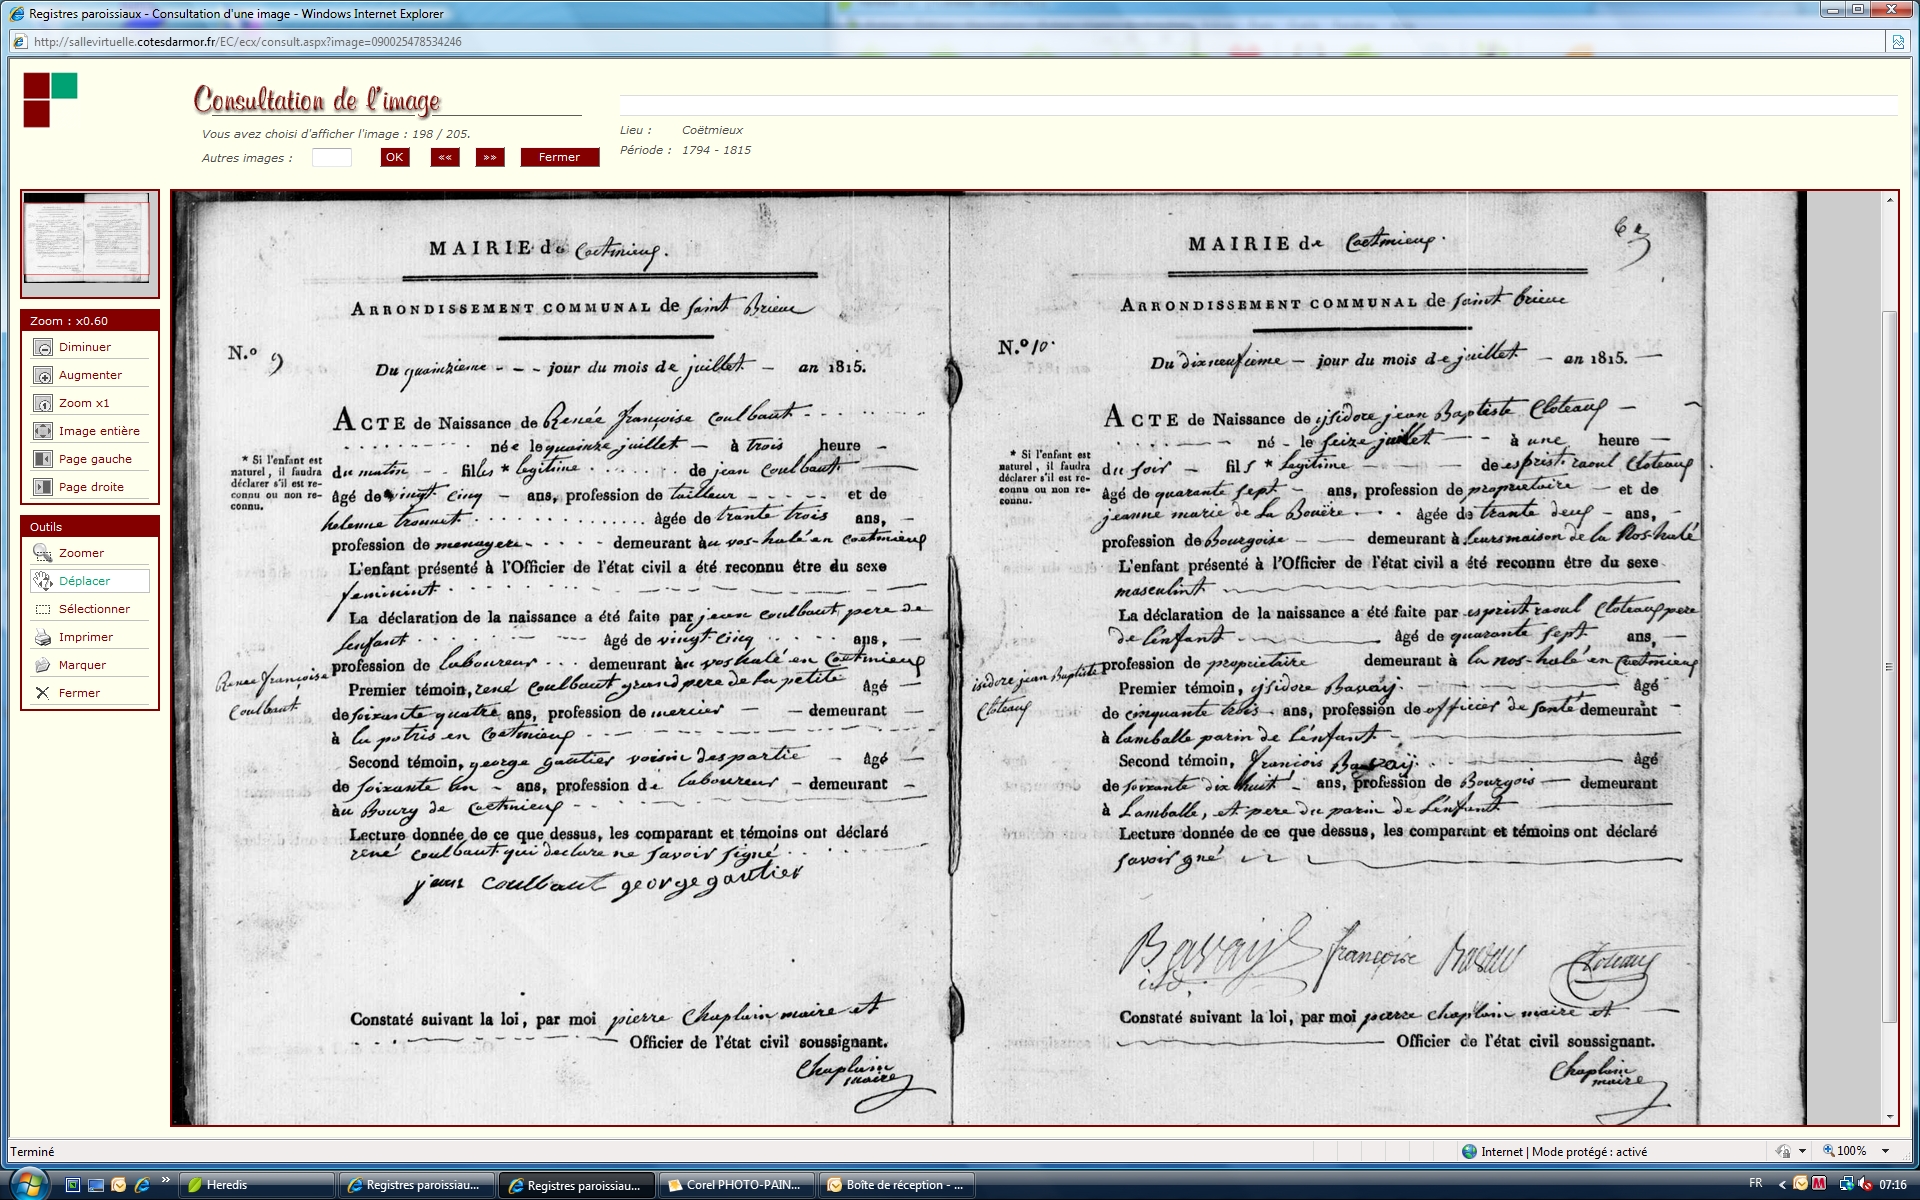 Registres paroissiaux - Consultation d'une image - Windows Internet Explorer
http://sallevirtuelle.cotesdarmor.fr/EC/ecx/consult.aspx?image=090025478534246
Consultation de l'image
Vous avez choisi d'afficher l'image : 198 / 205.
Autres images :
OK
««
»»
Fermer
Lieu : Coëtmieux
Période : 1794 - 1815
Zoom : x0.60
Diminuer
Augmenter
Zoom x1
Image entière
Page gauche
Page droite
Outils
Zoomer
Déplacer
Sélectionner
Imprimer
Marquer
Fermer
MAIRIE de Coetmieux.
ARRONDISSEMENT COMMUNAL de saint Brieuc
N.º 9
Du quainzieme - - - jour du mois de juillet - an 1815.
ACTE de Naissance de Renée françoise coulbaut
née le quainze juillet - à trois heure -
* Si l'enfant est naturel, il faudra déclarer s'il est reconnu ou non reconnu.
du matin - - filles * legitime de jean coulbaut
âgé de vingt cinq - ans, profession de tailleur - - - - - et de
helenne trouuet âgée de trante trois ans, -
profession de menagere - - - - demeurant àu vos-halé en coetmieux
L'enfant présenté à l'Officier de l'état civil a été reconnu être du sexe
feminint
La déclaration de la naissance a été faite par jean coulbaut pere de
lenfant âgé de vingt cinq ans, -
profession de laboureur - - - demeurant àu vos halé en Coetmieux
Renée françoise
Coulbaut
Premier témoin, rené coulbaut grand pere de la petite âgé -
de soixante quatre ans, profession de mercier - - demeurant -
à la potris en Coetmieux
Second témoin, george gautier voisin despartie - âgé -
de soixante un - ans, profession de laboureur - demeurant -
àu Bourg de Coetmieux
Lecture donnée de ce que dessus, les comparant et témoins ont déclaré
rené coulbaut qui declare ne savoir signé
jean coulbaut george gautier
Constaté suivant la loi, par moi pierre Chaplain maire et
Officier de l'état civil soussignant.
Chaplain
maire
MAIRIE de Coetmieux.
ARRONDISSEMENT COMMUNAL de saint brieuc
N.º 10.
Du dixneufieme - jour du mois de juillet - an 1815. -
ACTE de Naissance de ysidore jean Baptiste Cloteaux -
né - le seize juillet - - à une heure -
* Si l'enfant est naturel, il faudra déclarer s'il est reconnu ou non reconnu.
du soir - fils * legitime de esprist raoul Cloteaux
âgé de quarante sept - ans, profession de proprietaire - et de
jeanne marie de La Bouëre âgée de trante deux - ans, -
profession de Bourgoise - demeurant à leurs maison de la Nos-halé
L'enfant présenté à l'Officier de l'état civil a été reconnu être du sexe
masculint
La déclaration de la naissance a été faite par esprist raoul Cloteaux pere
de lenfant âgé de quarante sept ans, -
profession de propriétaire demeurant à la nos-halé en Coetmieux
isidore jean Baptiste
Cloteaux
Premier témoin, ysidore Bavay âgé
de cinquante trois - ans, profession de officier de santé demeurant -
à lamballe parin de Lénfant
Second témoin, françois Bavay âgé
de soixante dix huit - ans, profession de Bourgois - demeurant
à Lamballe, et pere du parin de Lénfant
Lecture donnée de ce que dessus, les comparant et témoins ont déclaré
savoir gné
Bavay françoise Bavay Cloteaux
Constaté suivant la loi, par moi pierre chaplain maire et -
Officier de l'état civil soussignant.
Chaplain
maire
Terminé
Internet | Mode protégé : activé
100%
Heredis
Registres paroissiau...
Registres paroissiau...
Corel PHOTO-PAIN...
Boîte de réception - ...
FR
07:16